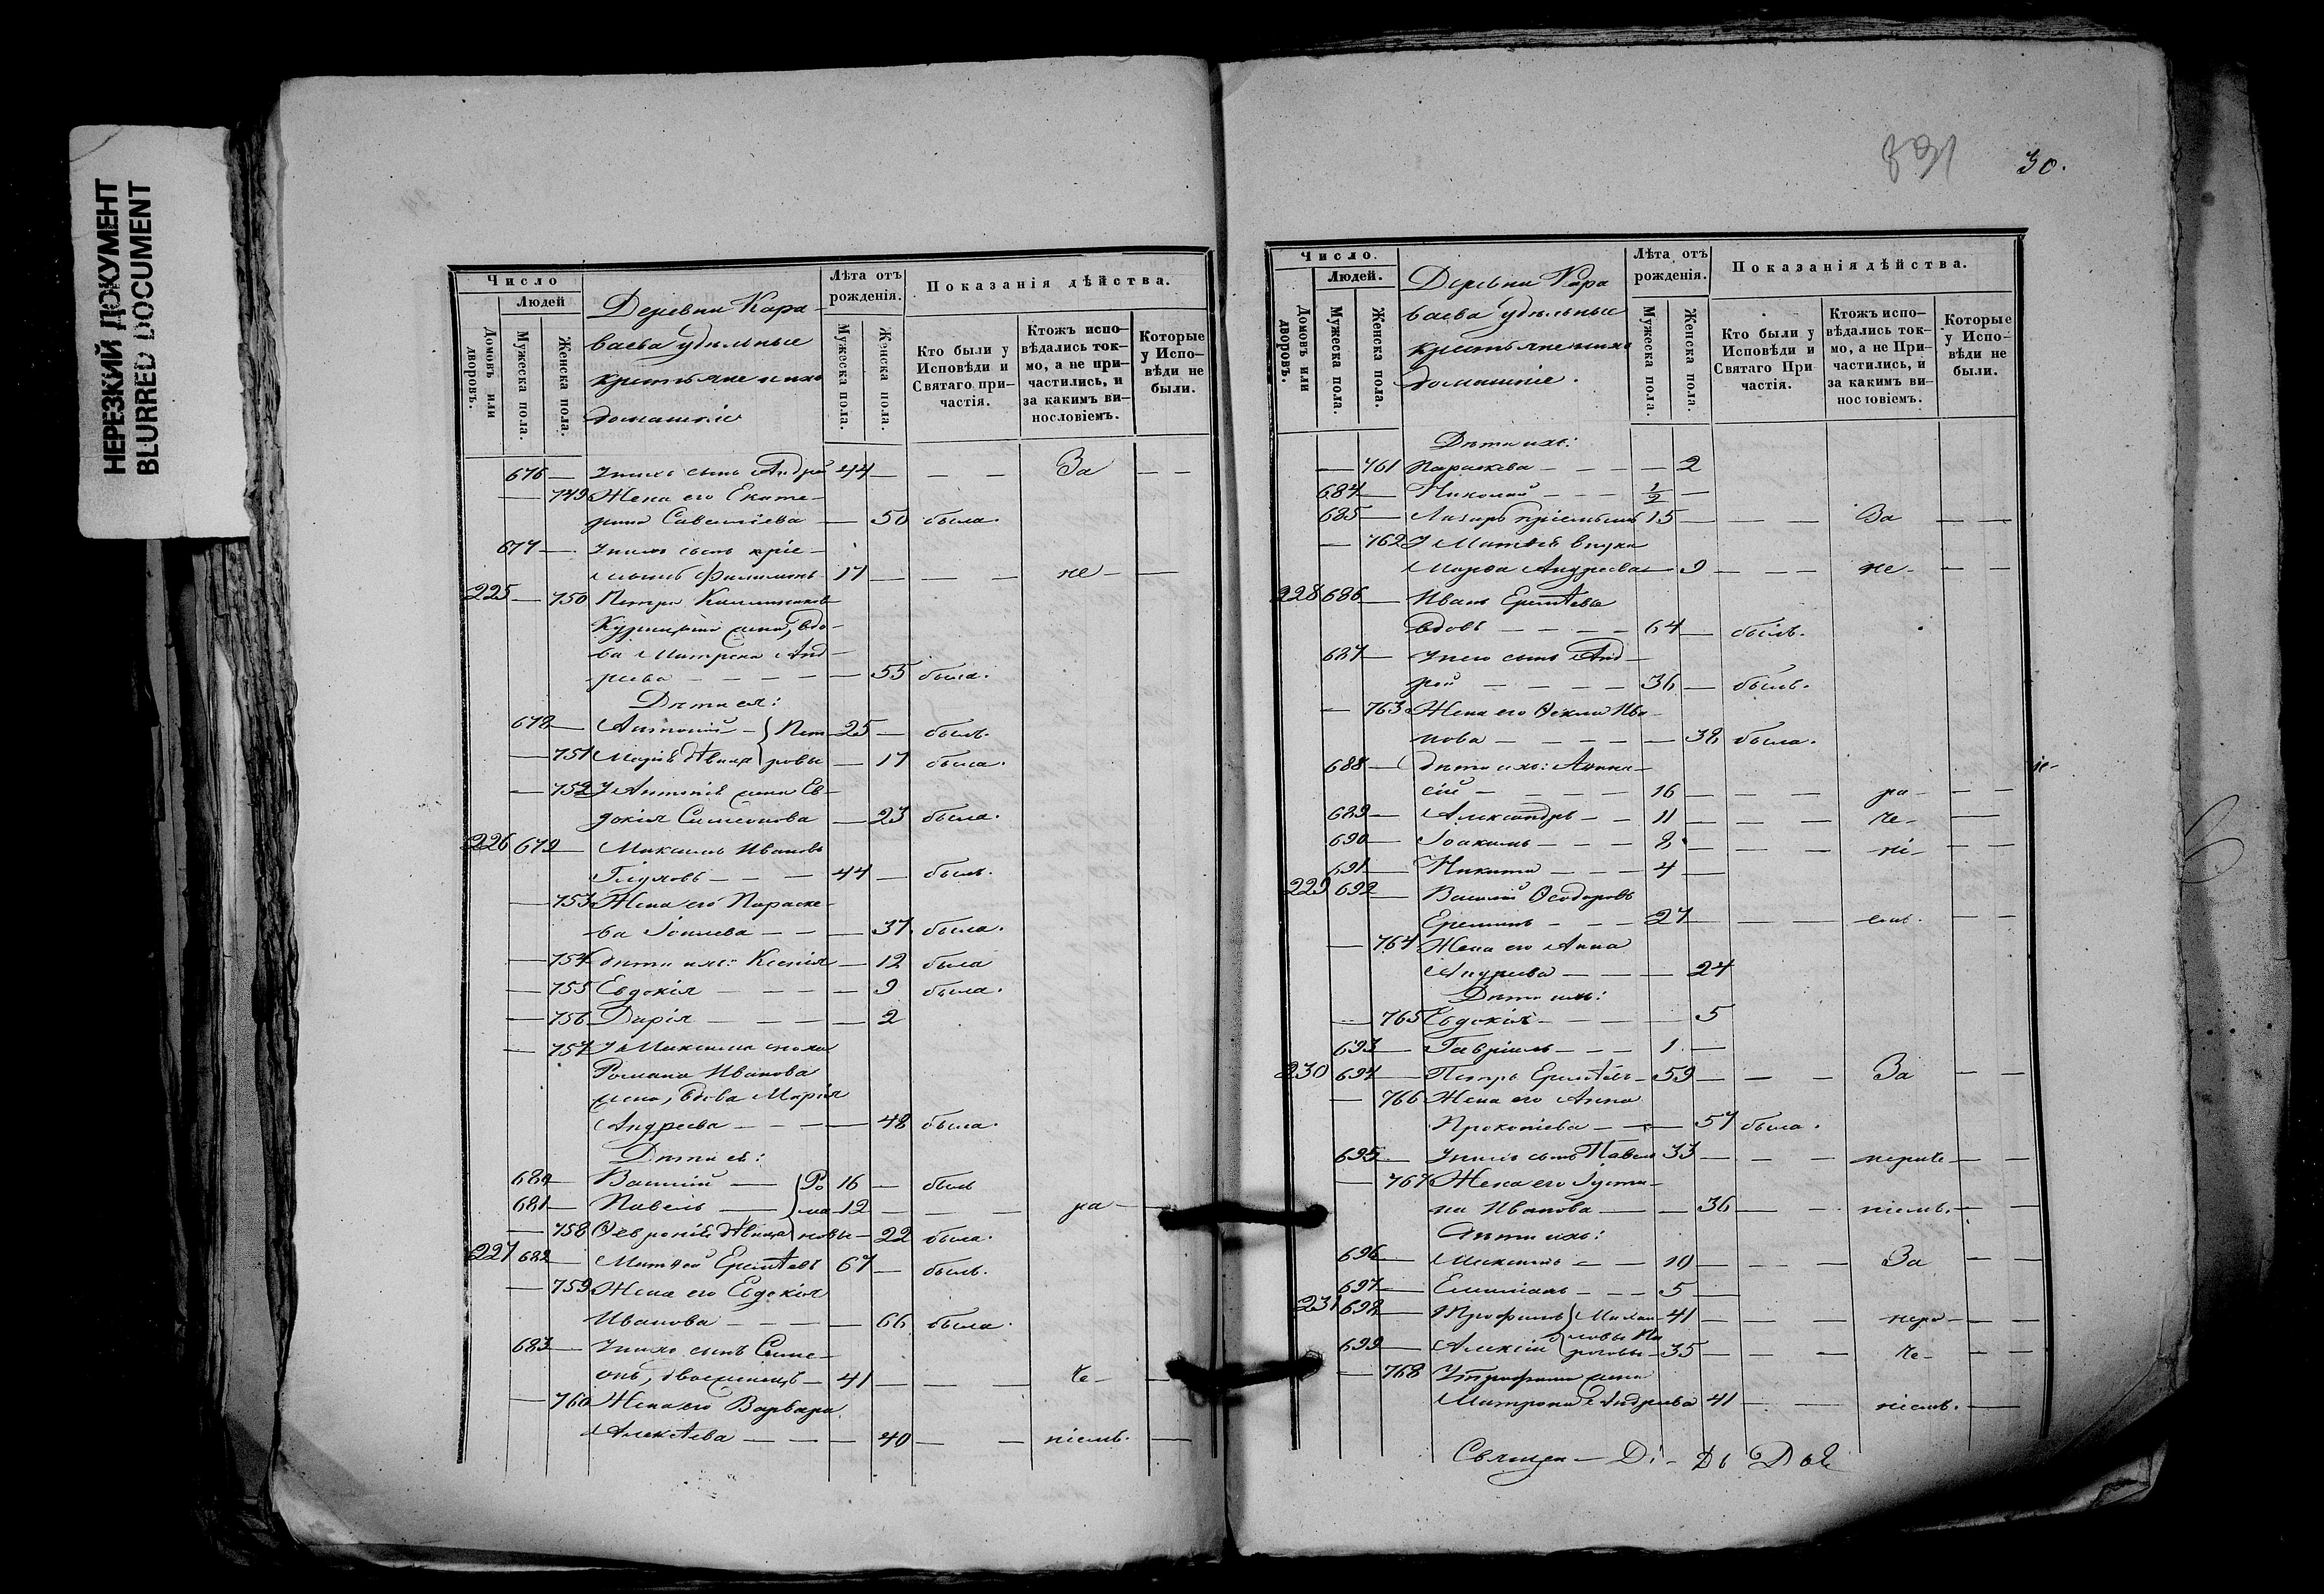 НЕРЕЗКИЙ ДОКУМЕНТ
BLURRED DOCUMENT
Число
Людей
Домовъ или дворовъ.
Мужеска пола.
Женска пола.
Деревни Кара-
ваева удѣльные
крестьяне и ихъ
домашніе
Лѣта отъ рожденія.
Мужеска пола.
Женска пола.
Показанія дѣйства.
Кто были у Исповѣди и Святаго причастія.
Ктожъ исповѣдались токмо, а не причастились, и за какимъ винословіемъ.
Которые у Исповѣди не были.
676 — У нихъ сынъ Андрей 44 — — — За — —
— 749 Жена его Екате-
рина Савельіева — 50 была.
677 — У нихъ сынъ пріе-
мышъ Филимонъ 17 — — — не — —
225 — 750 Петра
жена, вдо-
ва Матрена Анд-
реева — — — — — 55 была.
Дѣти ея:
678 — Антоній — } Пет- 25 — былъ.
— 751 Марія дѣвица } ровы — 17 была.
— 752 У Антонія жена Ев-
докія Симеонова — 23 была.
226 679 — Максимъ Ивановъ
Глуховъ — — — 44 — былъ.
— 753 Жена его Параске-
ва Іовлева — — — 37 была.
— 754 дѣти ихъ: Ксенія — 12 была
— 755 Евдокія — — — — 9 была.
— 756 Дарія — — — — 2
— 757 У Максима
Романа Иванова
жена, вдова Марія
Андреева — — — — 48 была.
Дѣти ея:
680 — Василій — } Ро 16 — былъ
681 — Павелъ — } ма- 12 — — — ра —
— 758 Ѳевронія дѣвица } новы — 22 была.
227 682 — Матѳей Ерем��евъ 67 — былъ.
— 759 Жена его Евдокія
Иванова — — — — 66 была.
683 — У нихъ сынъ Симе-
онъ, двоеженецъ — 41 — — — че — —
— 760 Жена его Варвара
Алексѣева — — — — 40 — — ніемъ. —
831
30.
Число.
Людей.
Домовъ или дворовъ.
Мужеска пола.
Женска пола.
Деревни Кара
ваева удѣльные
крестьяне и ихъ
домашніе.
Лѣта отъ рожденія.
Мужеска пола.
Женска пола.
Показанія дѣйства.
Кто были у Исповѣди и Святаго Причастія.
Ктожъ исповѣдались токмо, а не Причастились, и за какимъ винословіемъ.
Которые у Исповѣди не были.
Дѣти ихъ:
— 761 Параскева — — — — 2
684 — Николай — — — 1/2 —
685 — Лазарь пріемышъ 15 — — — За — —
— 762 У Матѳея внука
Марѳа Андреева — 9 — — — не — —
228 686 — Иванъ Еремѣевъ
вдовъ — — — — 64 — былъ.
687 — У него сынъ Анд-
рей — — — — 36 — былъ.
— 763 Жена его Ѳекла Ива-
нова — — — — — 38 была.
688 — дѣти ихъ: Аѳана-
сій — — — — 16 — — — ра — — —
689 — Александръ — — 11 — — — че — —
690 — Іоакимъ — — — 8 — — — ні — — —
691 — Никита — — — 4 —
229 692 — Василій Ѳеодоровъ
Ереминъ — — — 27 — — — емъ. — —
— 764 Жена его Анна
Андреева — — — — 24
Дѣти ихъ:
— 765 Евдокія — — — — 5
693 — Гавріилъ — — — 1 —
230 694 — Петръ Еремѣевъ — 59 — — — За — —
— 766 Жена его Анна
Прокопіева — — — 57 была.
695 — У нихъ сынъ Павелъ 33 — — — нераче — —
— 767 Жена его Іусти-
на Иванова — — — 36 — — ніемъ. — —
Дѣти ихъ:
696 — Максимъ — — — 10 — — — За — —
697 — Емиліанъ — — — 5 —
231 698 — Трофимъ } Михаи- 41 — — — нера — — —
699 — Алексій } ловы 35 — — — че — — —
— 768 У Трофима жена
Матрона Андреева 41 — — ніемъ. —
Священ —